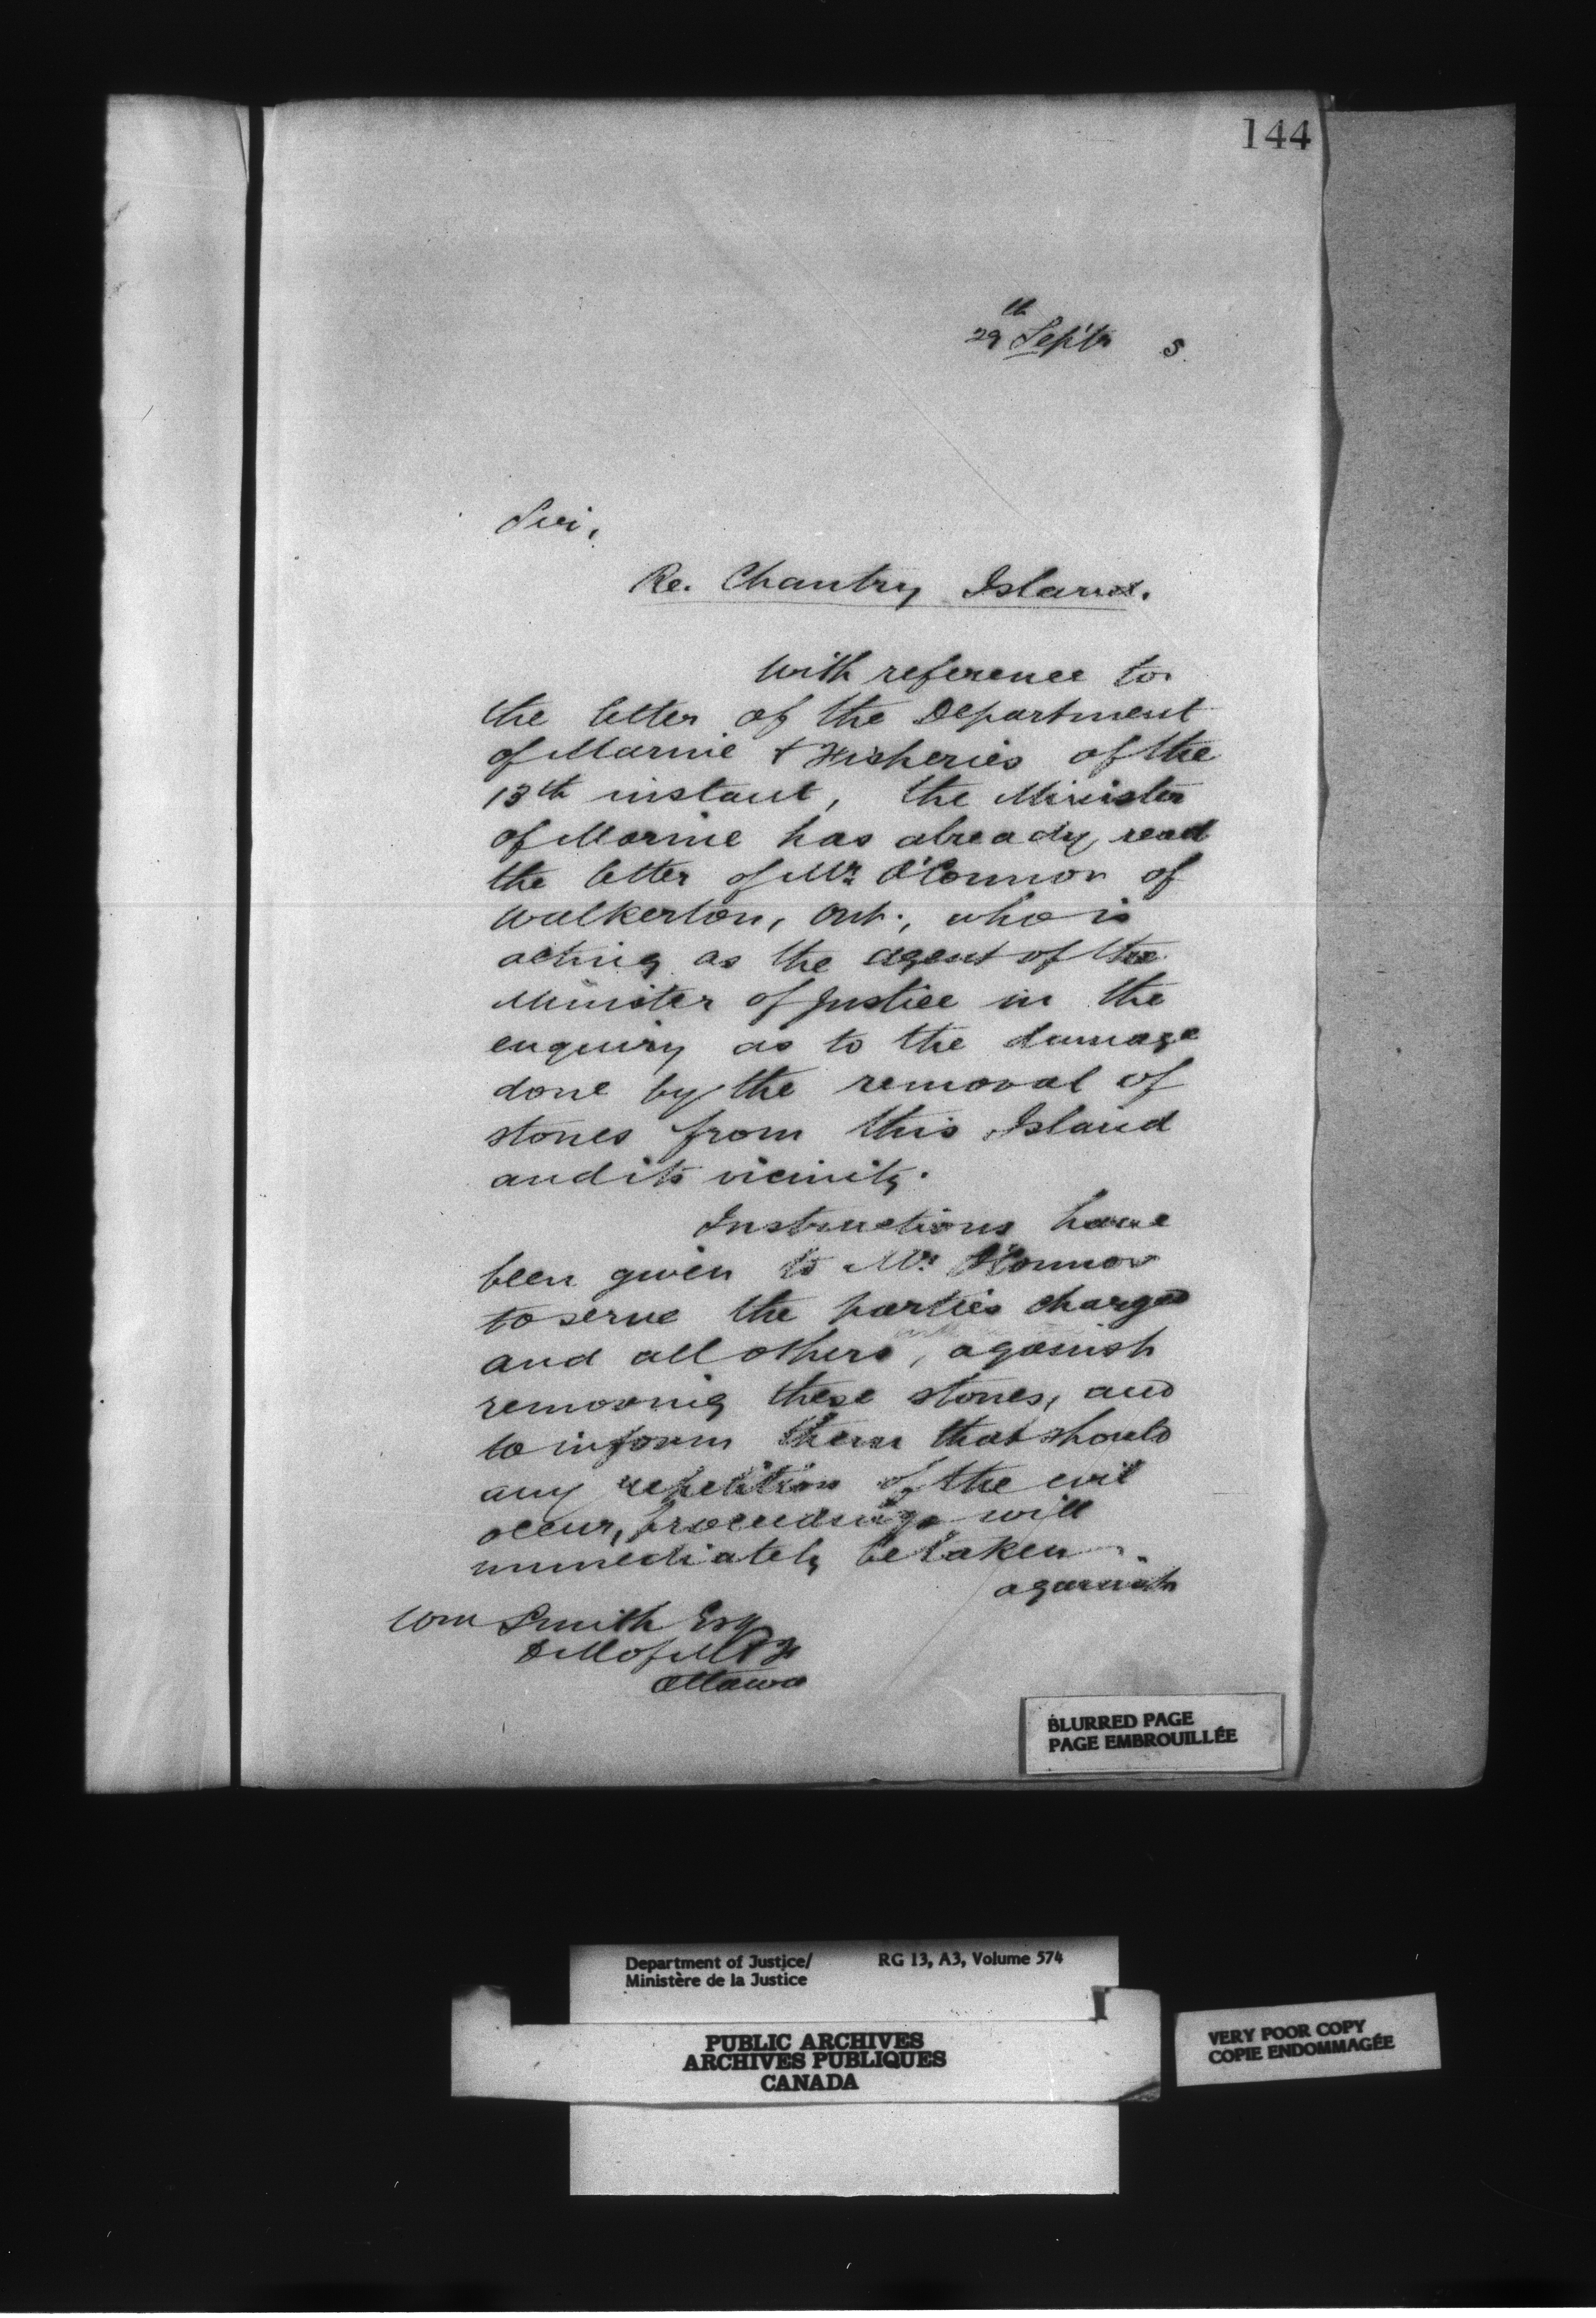 144
29th Septr 5.
Sir,
Re. Chantry Island.
With reference to
the letter of the Department
of Marine & Fisheries of the
13th instant, the Minister
of Marine has already read
the letter of Mr O'Connor of
Walkerton, Ont., who is
acting as the agent of the
Minister of Justice in the
enquiry as to the damage
done by the removal of
stones from this Island
and its vicinity.
Instructions have
been given to Mr O'Connor
to serve the parties charged
and all others, against
removing these stones, and
to inform them that should
any repetition of the evil
occur, proceedings will
immediately be taken
against
Wm Smith Esq
D M of M & F
Ottawa
BLURRED PAGE
PAGE EMBROUILLÉE
Department of Justice/ RG 13, A3, Volume 574
Ministère de la Justice
PUBLIC ARCHIVES
ARCHIVES PUBLIQUES
CANADA
VERY POOR COPY
COPIE ENDOMMAGÉE